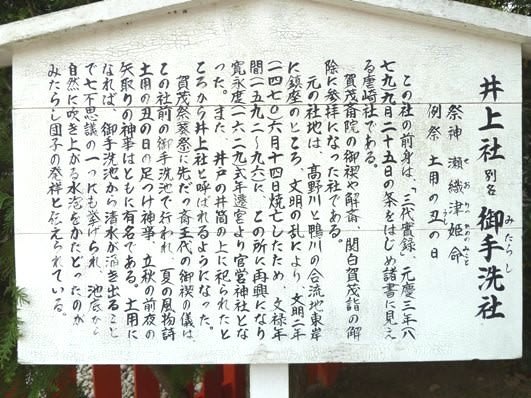 井上社 別名 御手洗社
みたらし
祭神 瀬織津姫命
せおりつひめのみこと
例祭 土用の丑の日
この社の前身は、「三代實録」、元慶三年(八
七九)九月二十五日の条をはじめ諸書に見え
る唐崎社である。
賀茂斎院の御禊や解斎、関白賀茂詣の解
除に参拝になった社である。
元の社地は、高野川と鴨川の合流地東岸
に鎮座のところ、文明の乱により、文明二年
(一四七〇)六月十四日焼亡したため、文禄年
間(一五九二〜九六)に、この所に再興になり
寛永度(一六二九)式年遷宮より官営神社とな
った。また、井戸の井筒の上に祀られたと
ころから井上社と呼ばれるようになった。
賀茂祭(葵祭)に先だつ斎王代の御禊の儀は、
この社前の御手洗池で行われ、夏の風物詩
土用の丑の日の足つけ神事、立秋の前夜の
矢取りの神事はともに有名である。土用に
なれば、御手洗池から清水が湧き出ること
で七不思議の一つにも挙げられ、池底から
自然に吹き上がる水泡をかたどったのが
みたらし団子の発祥と伝えられている。